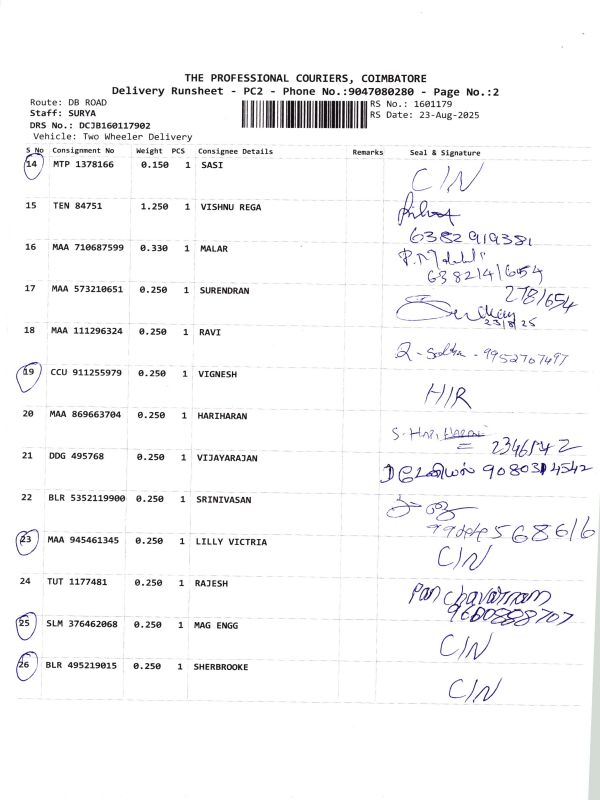 THE PROFESSIONAL COURIERS, COIMBATORE
Delivery Runsheet - PC2 - Phone No.:9047080280 - Page No.:2
Route: DB ROAD
Staff: SURYA
DRS No.: DCJB160117902
Vehicle: Two Wheeler Delivery
RS No.: 1601179
RS Date: 23-Aug-2025
S No Consignment No Weight PCS Consignee Details Remarks Seal & Signature
14 MTP 1378166 0.150 1 SASI C/N
15 TEN 84751 1.250 1 VISHNU REGA
6382919381
16 MAA 710687599 0.330 1 MALAR
638214/654
17 MAA 573210651 0.250 1 SURENDRAN 278/654
23/8/25
18 MAA 111296324 0.250 1 RAVI 9952707497
19 CCU 911255979 0.250 1 VIGNESH H/R
20 MAA 869663704 0.250 1 HARIHARAN S. Hari
21 DDG 495768 0.250 1 VIJAYARAJAN
22 BLR 5352119900 0.250 1 SRINIVASAN
23 MAA 945461345 0.250 1 LILLY VICTRIA C/N
24 TUT 1177481 0.250 1 RAJESH Panchavarnam
25 SLM 376462068 0.250 1 MAG ENGG C/N
26 BLR 495219015 0.250 1 SHERBROOKE C/N